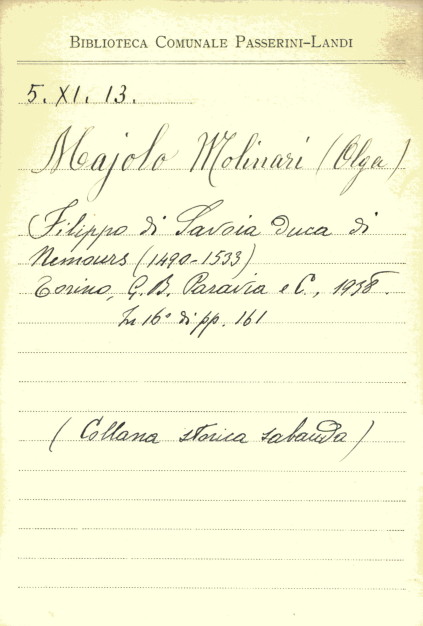 BIBLIOTECA COMUNALE PASSERINI-LANDI
5. XI. 13.
Majolo Molinari (Olga)
Filippo di Savoia duca di
Nemours (1490-1533)
Torino, G. B. Paravia e C., 1938.
In 16° di pp. 161
(Collana storica sabauda)